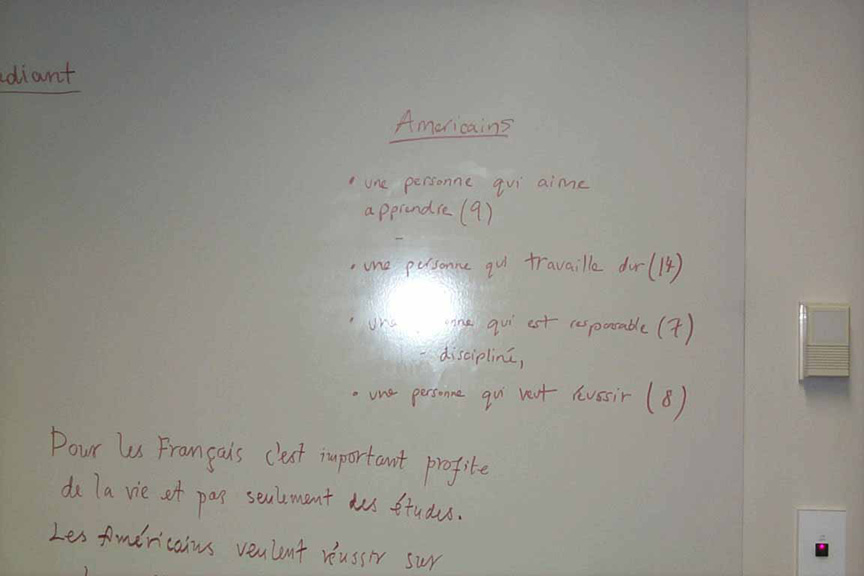 udiant
Americains
• une personne qui aime
apprendre (9)
• une personne qui travaille dur (14)
• une personne qui est responsable (7)
- discipliné,
• une personne qui veut réussir (8)
Pour les Français c'est important profite
de la vie et pas seulement des études.
Les Américains veulent réussir sur